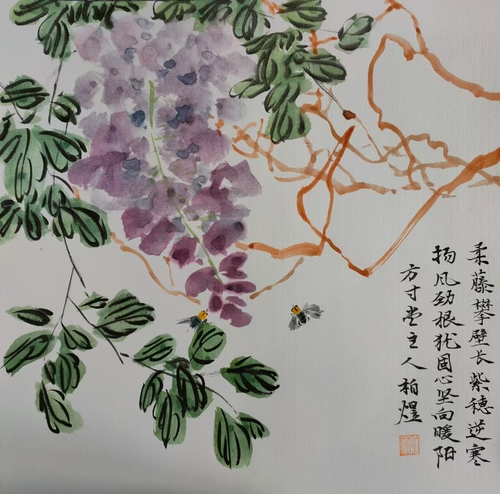 柔藤攀壁长紫穗逆寒
扬凡劲根犹固心坚向暖阳
方寸堂主人柏煜